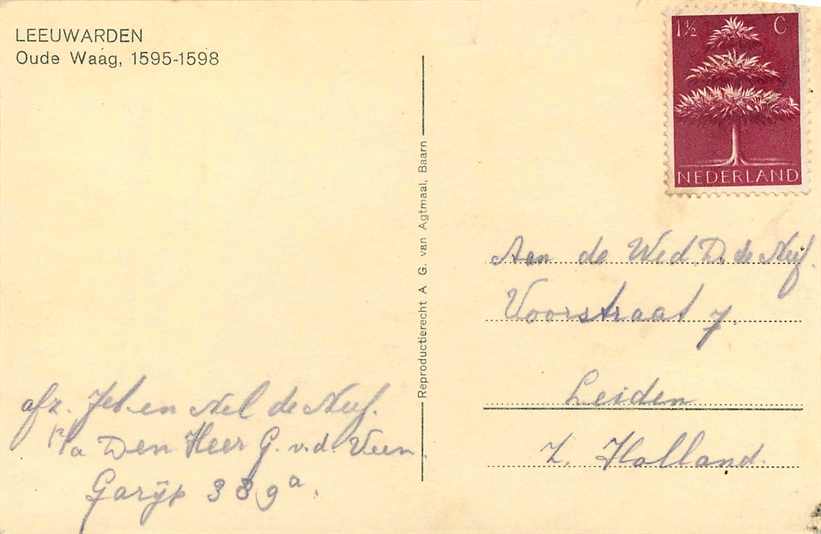 LEEUWARDEN
Oude Waag, 1595-1598
1½ C
NEDERLAND
Reproductierecht A. G. van Agtmaal, Baarn
Aan de Wed. D. de Nuf.
Voorstraat 7.
Leiden
Z. Holland.
afz. Jeb. en Nel de Nuf.
p/a Den Heer G. v.d. Veen
Garijp 339a.